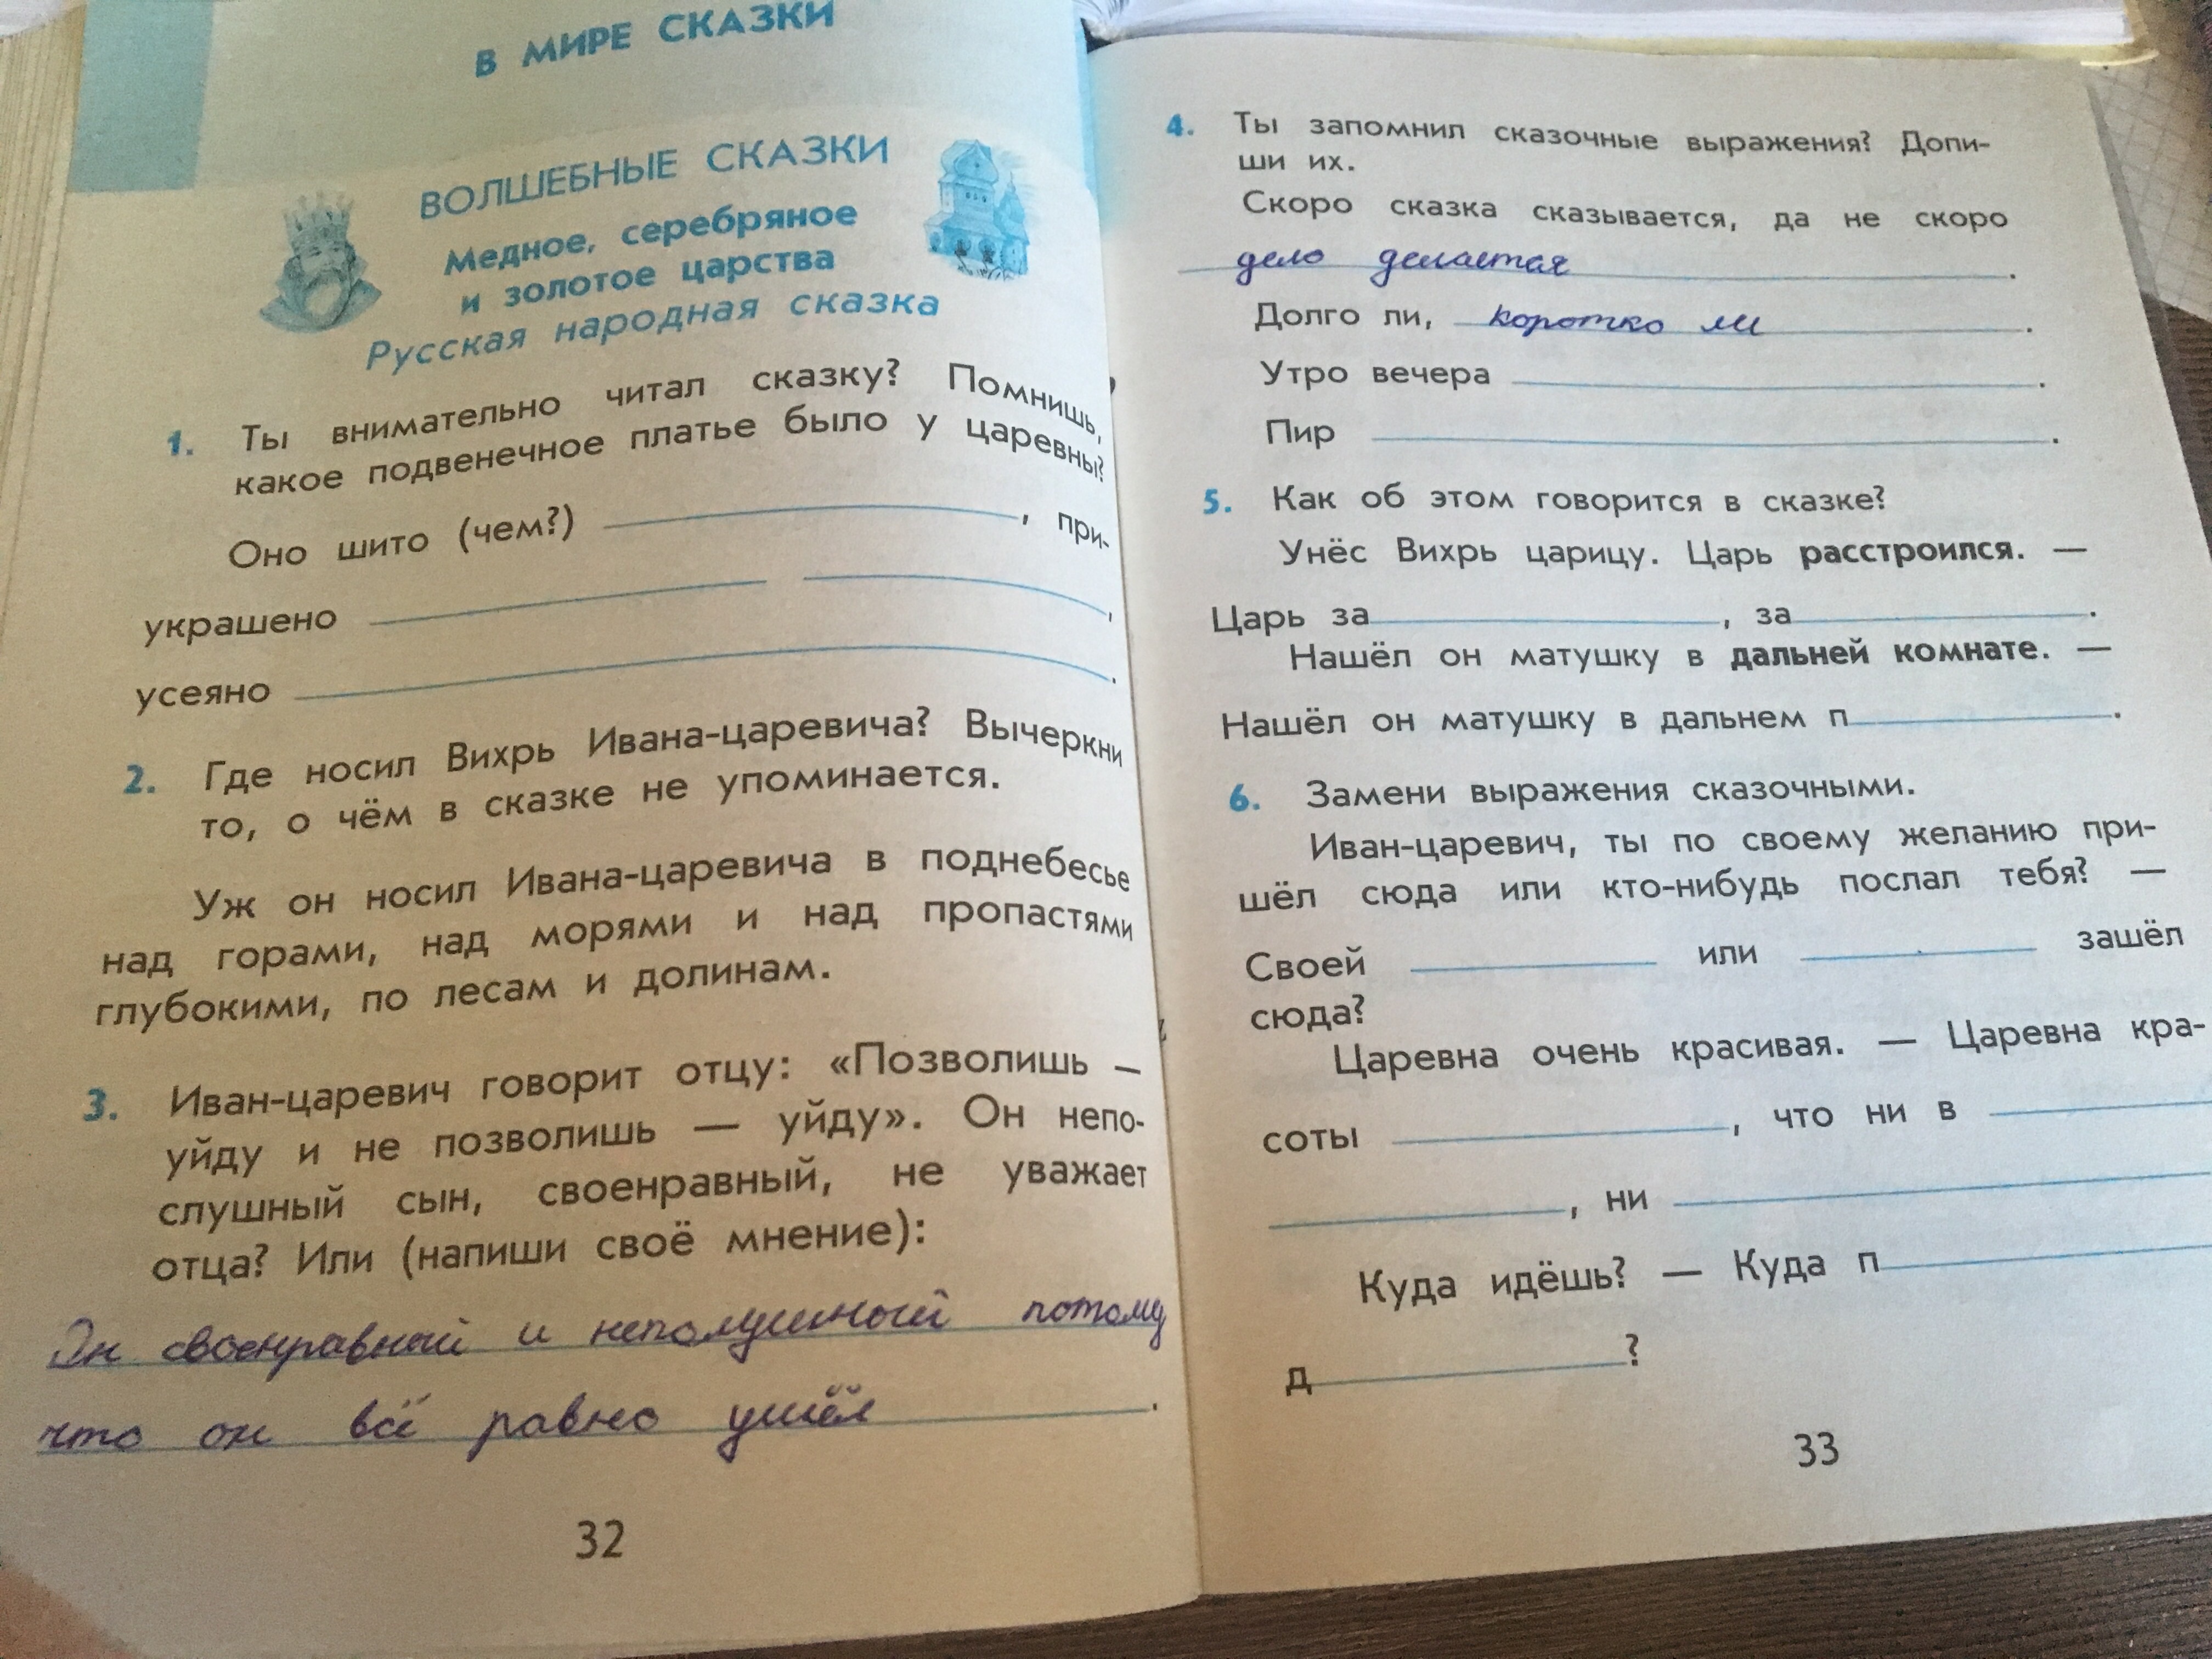 В МИРЕ СКАЗКИ
ВОЛШЕБНЫЕ СКАЗКИ
Медное, серебряное
и золотое царства
Русская народная сказка
1. Ты внимательно читал сказку? Помнишь,
какое подвенечное платье было у царевны?
Оно шито (чем?) , при-
украшено ,
усеяно .
2. Где носил Вихрь Ивана-царевича? Вычеркни
то, о чём в сказке не упоминается.
Уж он носил Ивана-царевича в поднебесье
над горами, над морями и над пропастями
глубокими, по лесам и долинам.
3. Иван-царевич говорит отцу: «Позволишь —
уйду и не позволишь — уйду». Он непо-
слушный сын, своенравный, не уважает
отца? Или (напиши своё мнение):
Он своенравный и непослушный потому
что он всё равно ушёл .
32
4. Ты запомнил сказочные выражения? Допи-
ши их.
Скоро сказка сказывается, да не скоро
дело делается .
Долго ли, коротко ли .
Утро вечера .
Пир .
5. Как об этом говорится в сказке?
Унёс Вихрь царицу. Царь расстроился. —
Царь за , за .
Нашёл он матушку в дальней комнате. —
Нашёл он матушку в дальнем п .
6. Замени выражения сказочными.
Иван-царевич, ты по своему желанию при-
шёл сюда или кто-нибудь послал тебя? —
Своей или зашёл
сюда?
Царевна очень красивая. — Царевна кра-
соты , что ни в
, ни
Куда идёшь? — Куда п
д ?
33